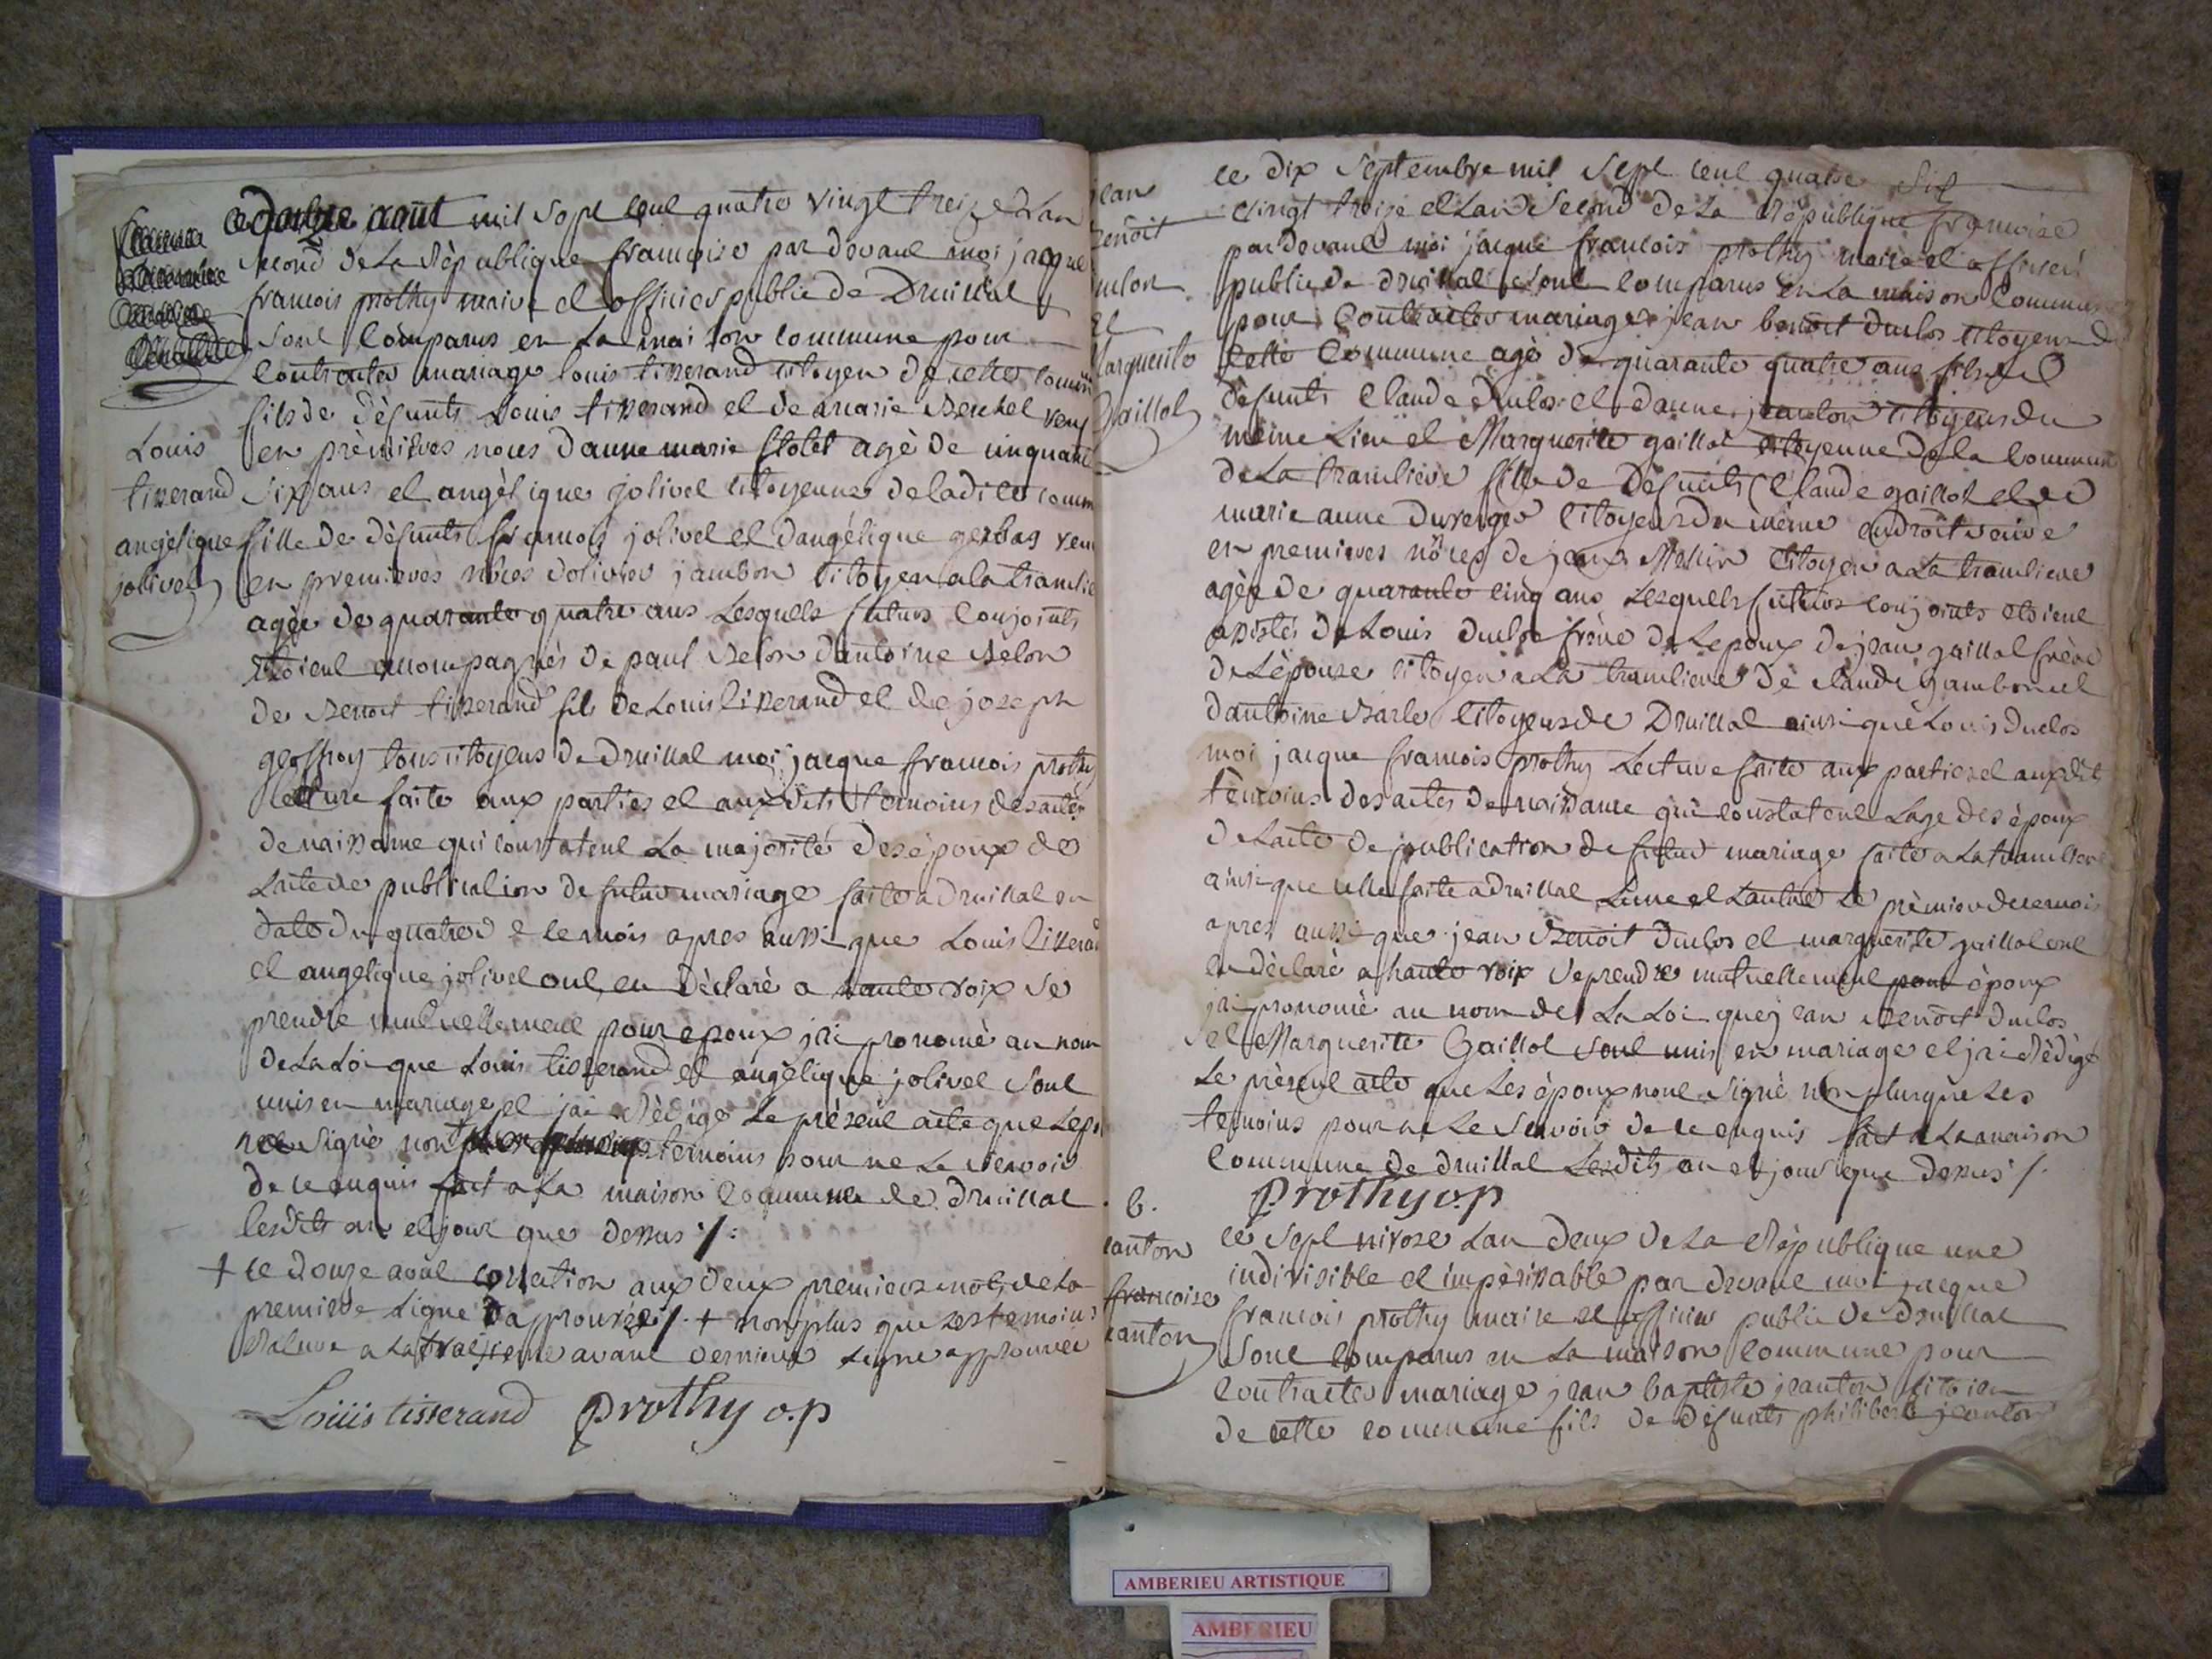 ce douze aout mil sept cent quatre vingt treize et Lan
second de La République francoise par devant moi jacque
francois prothy maire et officier public de Druillat
sont comparus en La maison commune pour
Contracter mariage louis tisserand citoyen de cette commune
fils de défunts Louis tisserand et de marie veuf
Louis
tisserand
angélique
jolivet
en prèmieres noces danne marie agé de cinquante
six ans et angèlique jolivet citoyenne de ladite comm
fille de défunts francois jolivet et dangélique veu
en premieres nôces dolivier jambon citoyen a la tranclie
agée de quarante quatre ans Lesquels futurs conjoints
étoient accompagnés de paul Belon dantoine Belon
de Benoit tisserand fils de Louis tisserand et de joseph
geoffroy tous citoyens de Druillat moi jacque francois prothy
lecture faite aux parties et aux dits temoins des actes
de naissance qui constatent La majorité des époux de
Lacte de publication de futur mariage faite a Druillat en
date du quatre de ce mois apres aussi que Louis tisserand
et angelique jolivet ont en déclaré a haute voix se
prendre mutuellement pour epoux jai prononcé au nom
de La Loi que Louis tisserand et angélique jolivet sont
unis en mariage et jai Rédigé Le présent acte que Lepo
signé non temoins pour ne Le scavoir
de ce enquis fait a La maison commune de druillat
lesdits an et jour que dessus /:
+ ce douze aout aux deux premiers mots de La
premiere Ligne approuvée /. + non plus que Les temoins
a La avant derniere Ligne approuvée
Louis tisserand prothy o.p
jean
Benoit
duclos
et
Marguerite
Gaillot
ce dix septembre mil sept cent quatre
vingt treize et Lan Second de La République francoise
par devant moi jacque francois prothy maire et officier
public de druillat sont comparus en La maison commune
pour Contracter mariage jean benoit duclos citoyen de
cette Commune agé de quarante quatre ans fils de
défunts Claude duclos et danne jeanton citoyens du
même Lieu et Marguerite gaillot citoyenne de la Commune
de La trancliere fille de Défunts Claude gaillot et de
marie anne duverger citoyens du même endroit veuve
en premieres nôces de jean citoyen a La trancliere
agée de quarante cinq ans Lesquels futurs conjoints étoient
assistés de Louis duclos frère de Lepoux de jean gaillot frère
de Lépouse citoyen a La trancliere de claude jambon et
dantoine citoyens de Druillat ainsi que Louis duclos
moi jacque francois prothy Lecture faite aux parties et aux dits
témoins des actes de naissance qui constatent Lage des époux
de Lacte de publication de futur mariage faite a La trancliere
ainsi que celle faite a druillat Lune et Lautre Le prèmier de ce mois
apres aussi que jean Benoit duclos et marguerite gaillot ont
en déclaré a haute voix se prendre mutuellement pour époux
jai prononcé au nom de La Loi que jean Benoit duclos
et Marguerite Gaillot sont unis en mariage et jai Rédigé
Le présent acte que Les époux nont signé non plus que Les
temoins pour ne Le scavoir de ce enquis fait a La maison
commune de druillat Lesdits an et jour que dessus /.
prothy o.p
b.
jeanton
francoise
jeanton
ce sept nivose Lan deux de La République une
indivisible et impérissable par devant moi jacque
francois prothy maire et officier public de druillat
sont comparus en La maison commune pour
contracter mariage jean baptiste jeanton
de cette commune fils de défunts philibert jeanton
AMBERIEU ARTISTIQUE
AMBERIEU